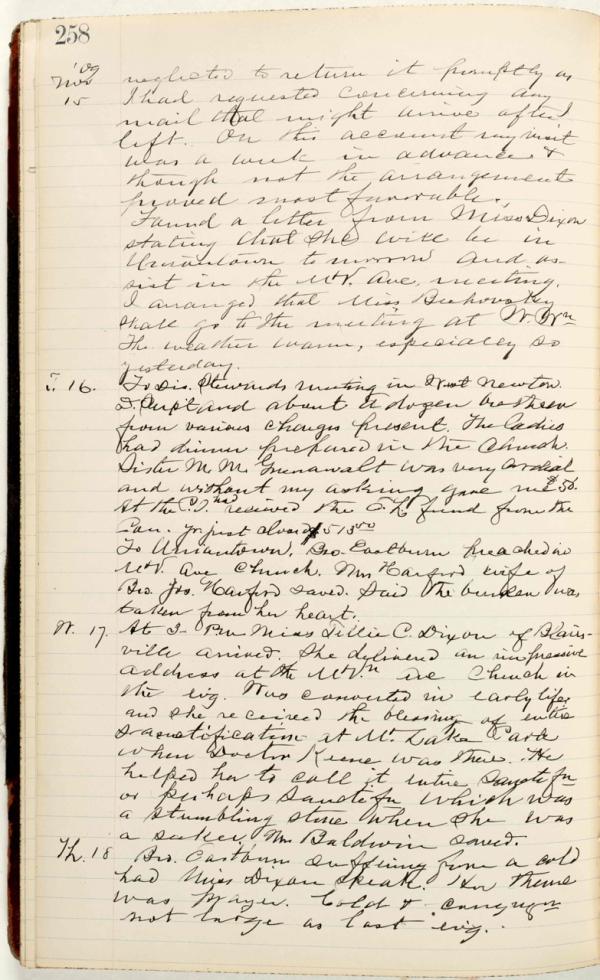 258
'09
Nov neglected to return it promptly as
15 I had requested concerning any
mail that might arrive after I
left. On this account my visit
was a week in advance &
though not the arrangement
proved most favorable.
Found a letter from Miss Dixon
stating that she will be in
Uniontown tomorrow and as-
sist in the Mt. V. Ave. meeting.
I arranged that Miss
shall go to the meeting at W.
The weather warm, especially so
yesterday.
T. 16. To Dis. Stewards meeting in West Newton.
D. Supt and about a dozen brethren
from various charges present. The ladies
had dinner prepared in the Church.
Sister M. M. Greenawalt was very cordial
and without my asking gave me $50.
At the had received the fund from the
Con. yr just closed $513.00
To Uniontown. Bro. Eastburn preached in
Mt. V. Ave Church. Mrs Hanford wife of
Bro. Jos. Hanford saved. Said the burden was
taken from her heart.
W. 17. At 3- Miss Tillie C. Dixon of Blairs-
ville arrived. She delivered an impressive
address at the Mt. V. Ave Church in
the evg. Was converted in early life
and she received the blessing of entire
sanctification at Mt. Lake Park
when Doctor Keene was there. He
helped her to call it entire
or perhaps which was
a stumbling stone when she was
a seeker. Mrs Baldwin saved.
Th. 18 Bro. Eastburn suffering from a cold
had Miss Dixon speak. Her theme
was Prayer. Cold & congregn
not large as last evg.